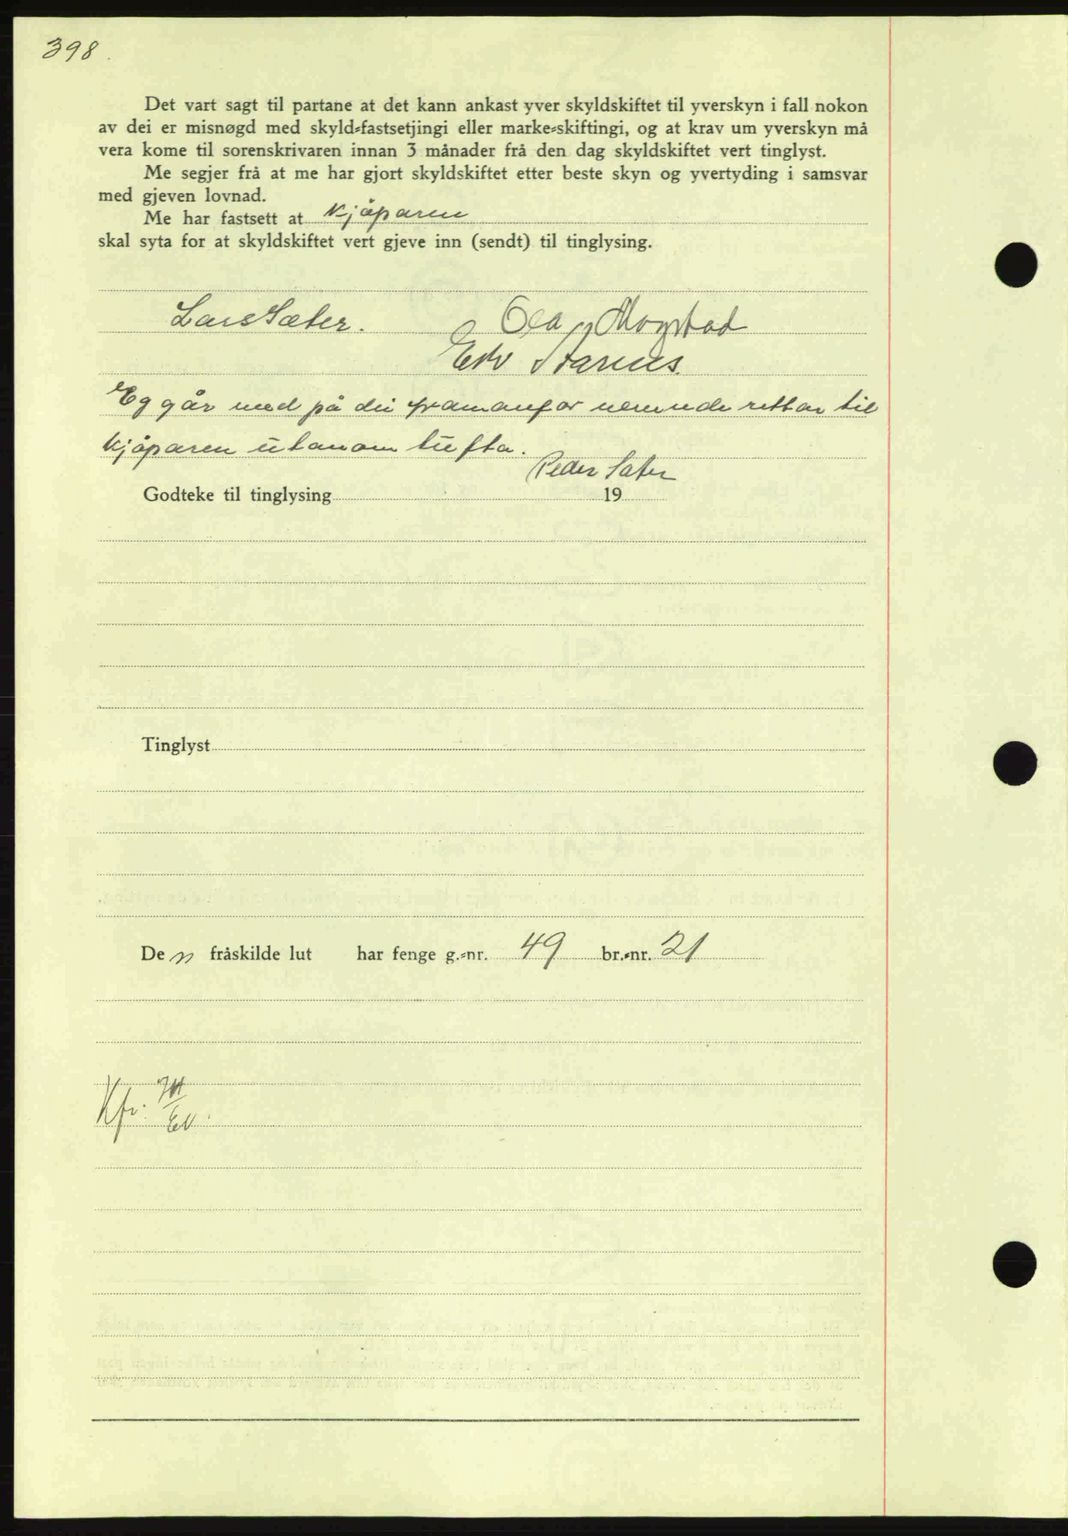 398.
Det vart sagt til partane at det kann ankast yver skyldskiftet til yverskyn i fall nokon
av dei er misnøgd med skyld-fastsetjingi eller marke-skiftingi, og at krav um yverskyn må
vera kome til sorenskrivaren innan 3 månader frå den dag skyldskiftet vert tinglyst.
Me segjer frå at me har gjort skyldskiftet etter beste skyn og yvertyding i samsvar
med gjeven lovnad.
Me har fastsett at kjøparen
skal syta for at skyldskiftet vert gjeve inn (sendt) til tinglysing.
Lars Sæter. Ola Mogstad
Edv
Eg går med på dei framanfor nemnde rettar til
kjøparen utanom tufta.
Peder Sæter
Godteke til tinglysing 19
Tinglyst
De n fråskilde lut har fenge g.-nr. 49 br.-nr. 21
Kfr: